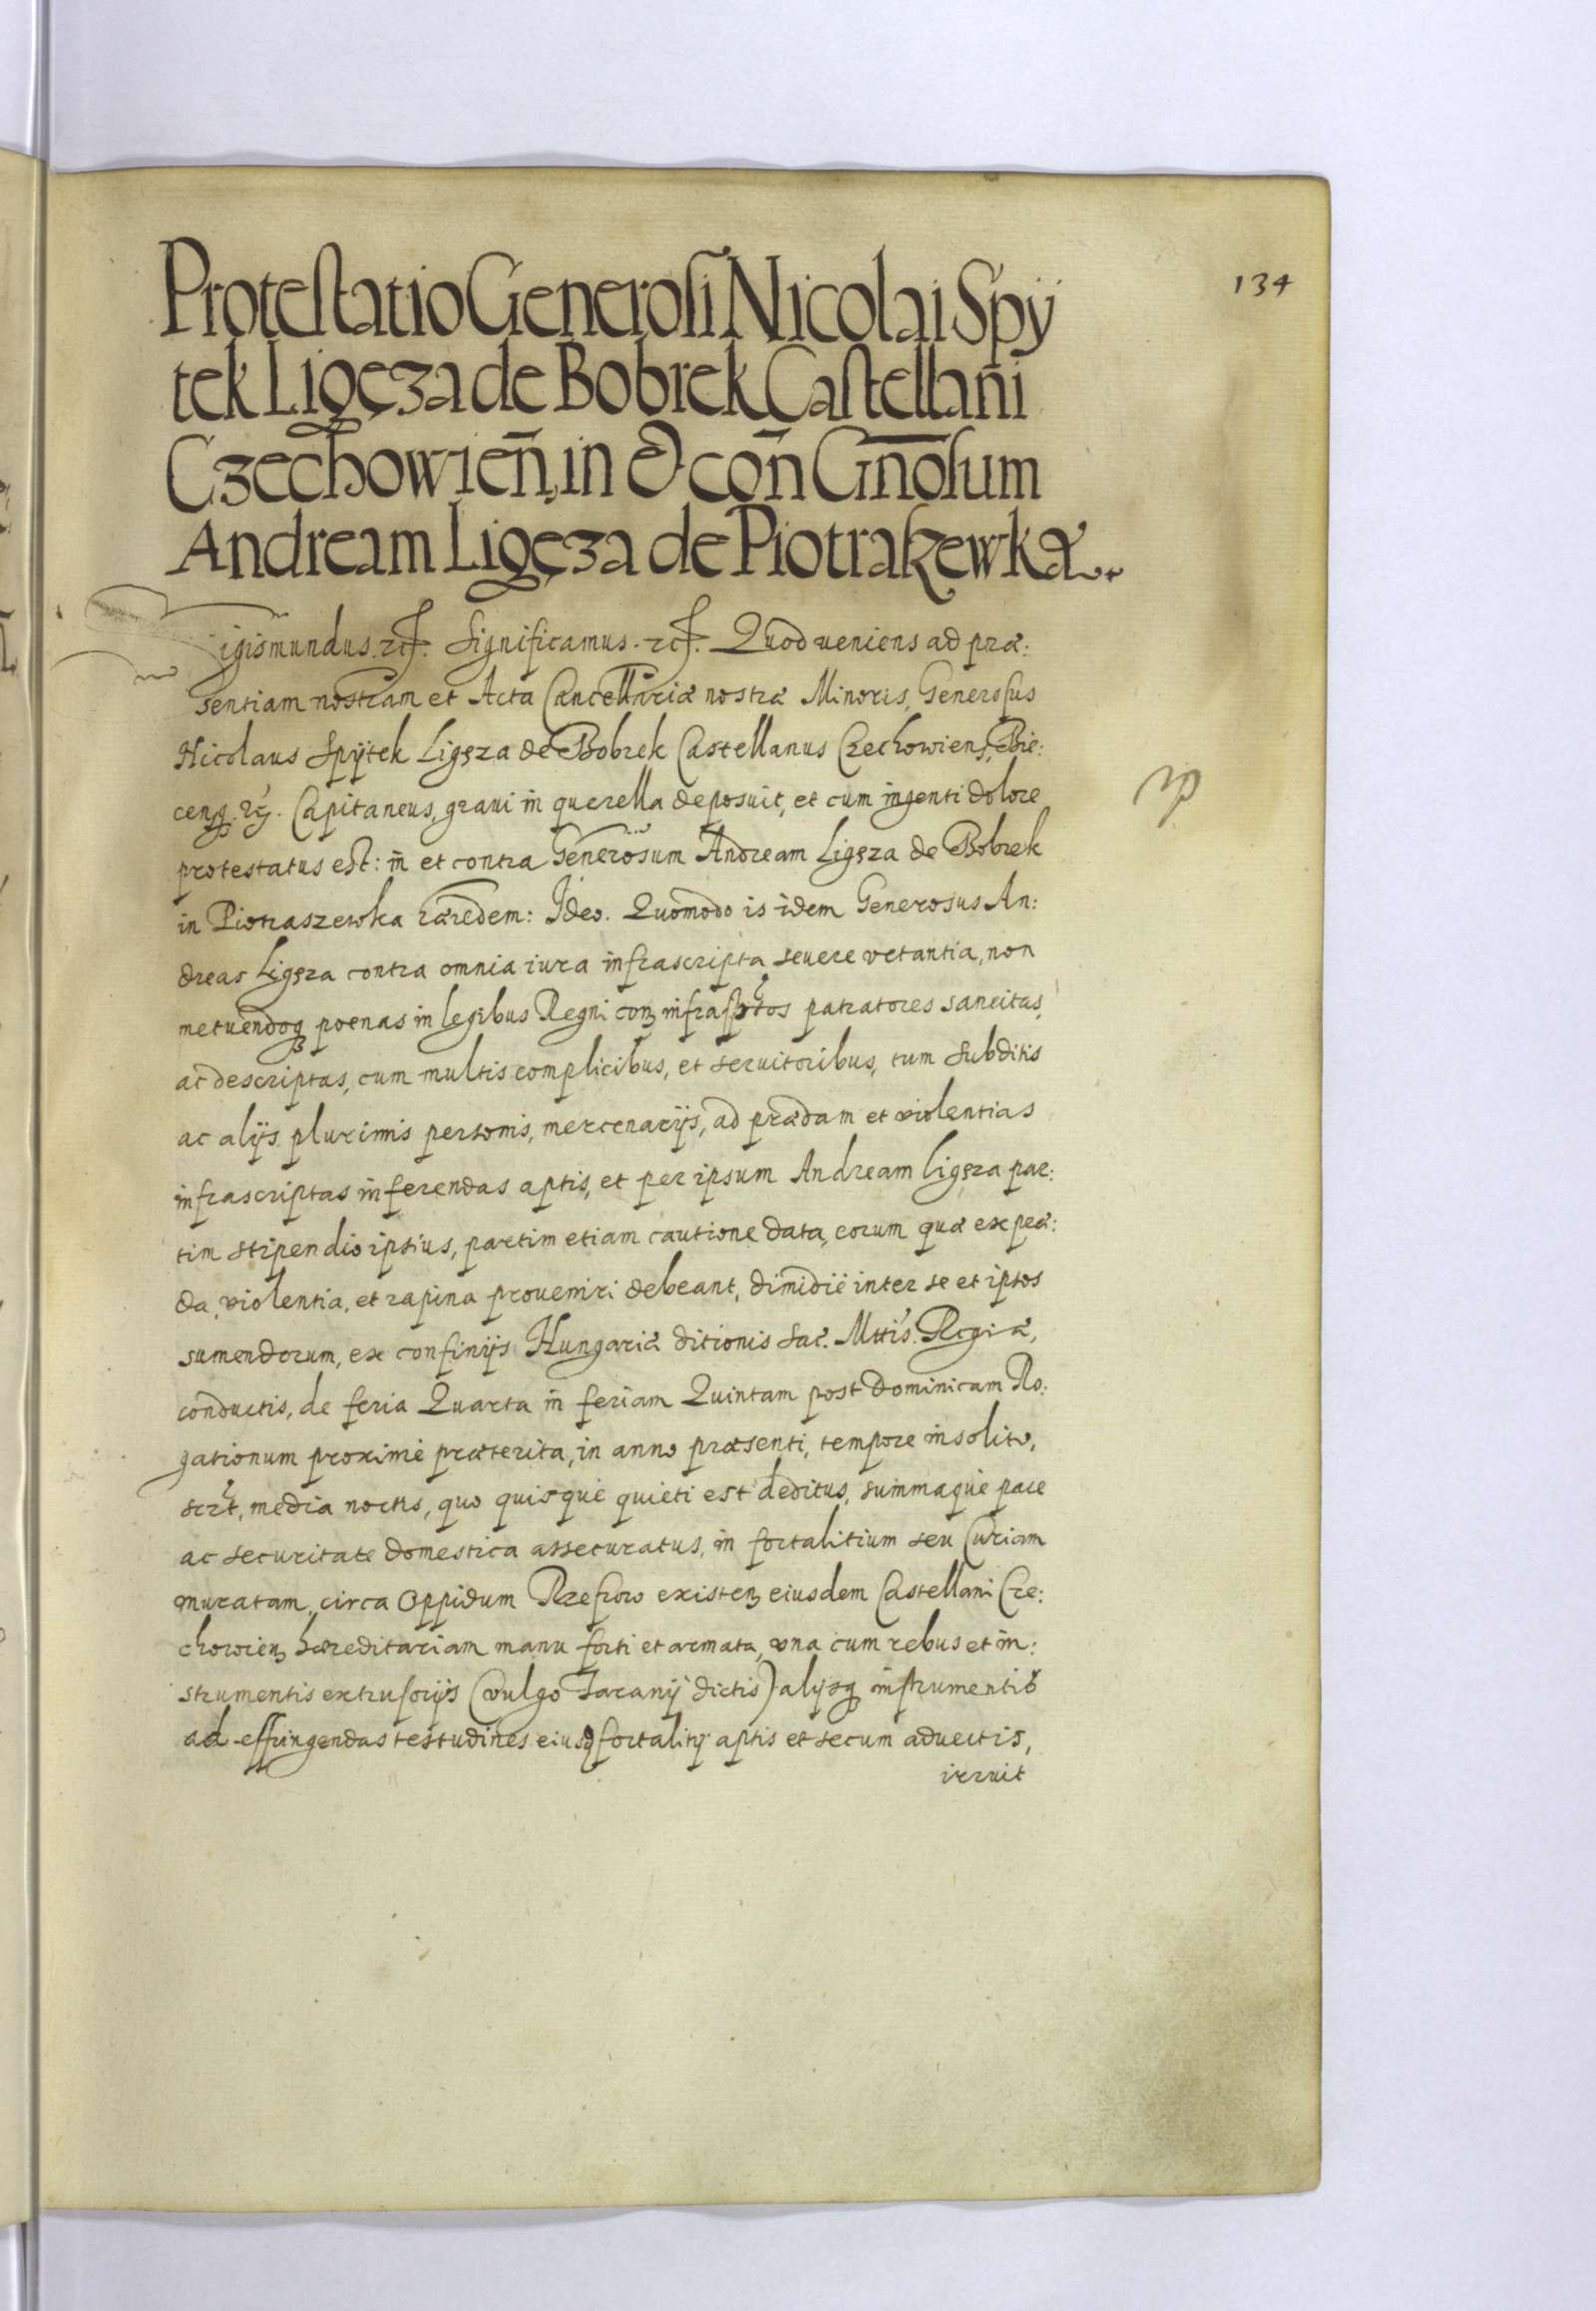 134
Protestatio Generosi Nicolai Spÿ
tek Ligęza de Bobrek Castellani
Czechowień, in & coñ Gñosum
Andream Ligęza de Piotraszewka.
Sigismundus. etc. Significamus. etc. Quod veniens ad præ:
sentiam nostram et Acta Cancellariæ nostræ Minoris, Generosus
Nicolaus Spÿtek Ligęza de Bobrek Castellanus Czechowień, Bie:
censq. etc. Capitaneus, graui in querella deposuit, et cum ingenti dolore
protestatus est: in et contra Generosum Andream Ligęza de Bobrek
in Piotraszewka hæredem: Ideo. Quomodo is idem Generosus An:
dreas Ligęza contra omnia iura infrascripta seuere vetantia, non
metuendoq pœnas in legibus Regni con infrasptos patratores sancitas,
ac descriptas, cum multis complicibus, et seruitoribus, tum subditis
ac alijs plurimis personis, mercenarijs, ad prædam et violentias
infrascriptas inferendas aptis, et per ipsum Andream Ligęza par:
tim stipendio ipsius, partim etiam cautione data, eorum quæ ex præ:
da, violentia, et rapina proueniri debeant, dimidie inter se et ipsos
sumendorum, ex confinijs Hungariæ ditionis Sac. Mttis. Regiæ,
conductis, de feria Quarta in feriam Quintam post Dominicam Ro:
gationum proxime præterita, in anno præsenti, tempore insolito,
scet, media noctis, quo quisque quieti est deditus, summaque pace
ac securitate domestica assecuratus, in fortalitium seu Curiam
muratam, circa Oppidum Rzeszow existen eiusdem Castellani Cze:
chowien hæreditariam manu forti et armata, vna cum rebus et in:
strumentis extrusorijs (vulgo Tarany dictis) alijsq instrumentis
ad effringendas testudines eiusd fortalitij aptis et secum aduectis,
irruit